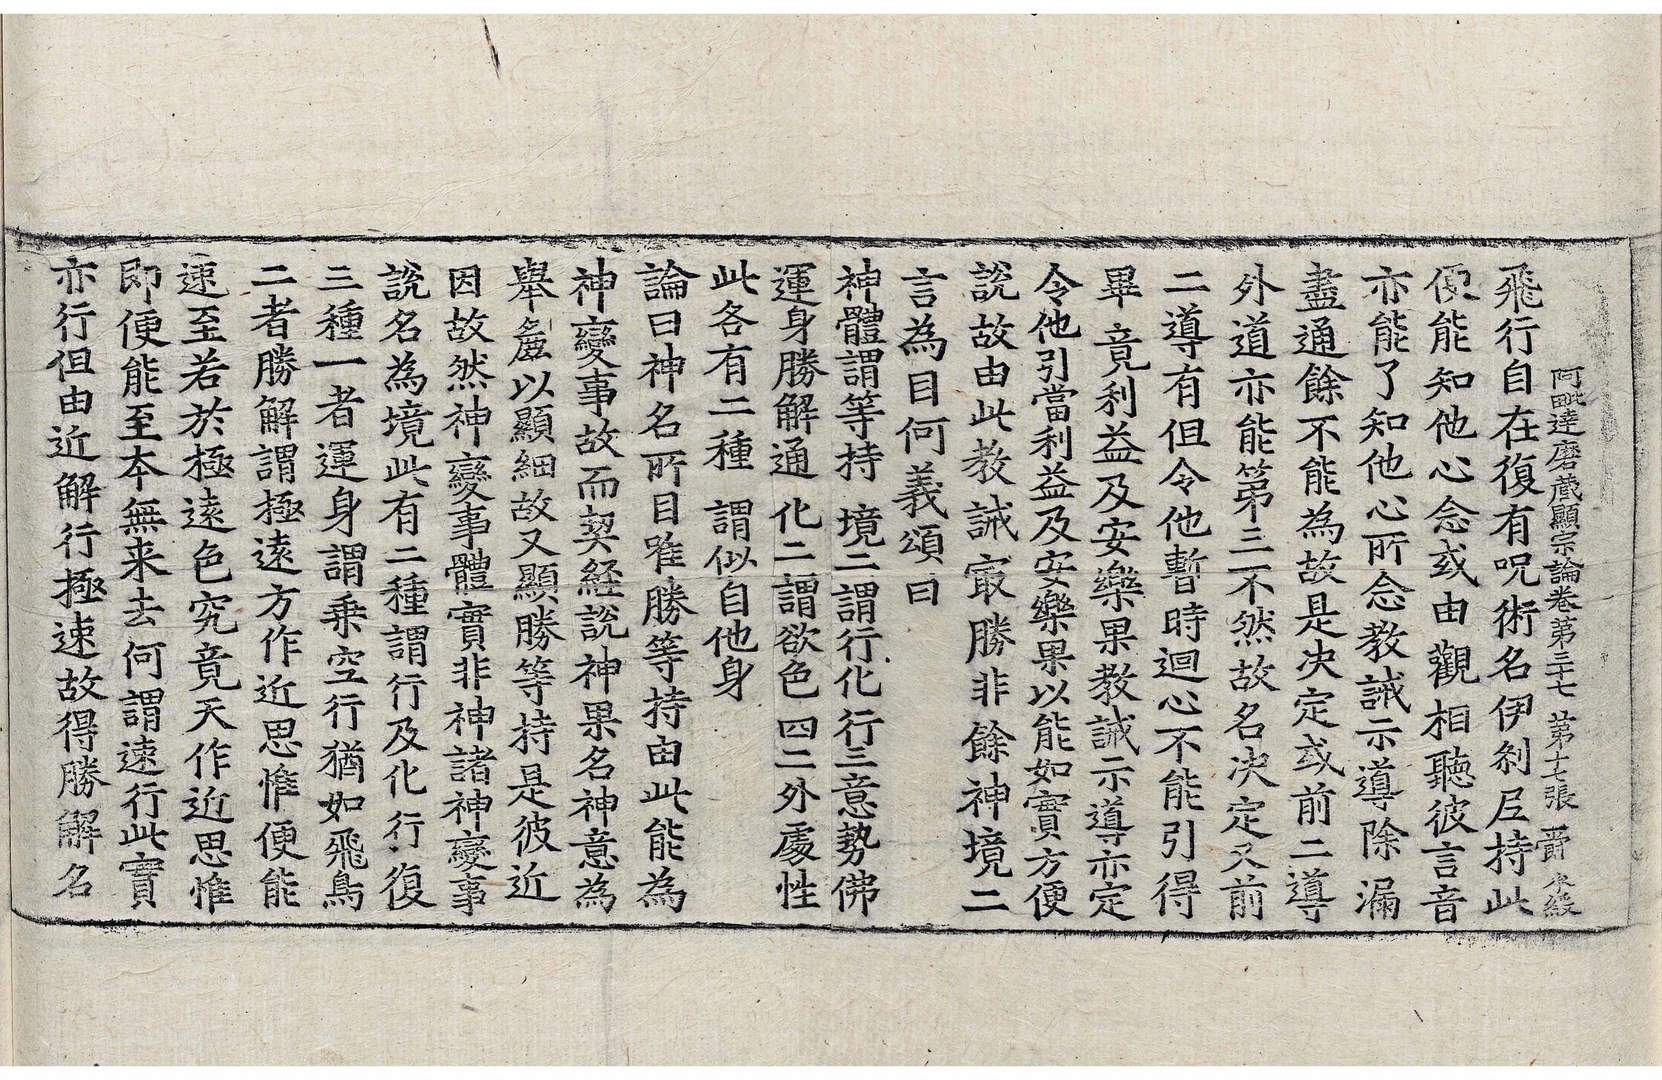 阿毗達磨藏顯宗論卷第三十七 第十七張 爵
飛行自在復有呪術名伊刹尼持此
便能知他心念或由觀相聽彼言音
亦能了知他心所念教誡示導除漏
盡通餘不能為故是决定或前二導
外道亦能第三不然故名决定又前
二導有但令他暫時迴心不能引得
畢竟利益及安樂果教誡示導亦定
令他引當利益及安樂果以能如實方便
說故由此教誡寂勝非餘神境二
言為目何義頌曰
神體謂等持 境二謂行化 行三意勢佛
運身勝解通 化二謂欲色 四二外處性
此各有二種 謂似自他身
論曰神名所目唯勝等持由此能為
神變事故而契經說神果名神意為
舉麁以顯細故又顯勝等持是彼近
因故然神變事體實非神諸神變事
說名為境此有二種謂行及化行復
三種一者運身謂乗空行猶如飛鳥
二者勝解謂極遠方作近思惟便能
速至若於極遠色究竟天作近思惟
即便能至本無来去何謂速行此實
亦行但由近解行極速故得勝解名